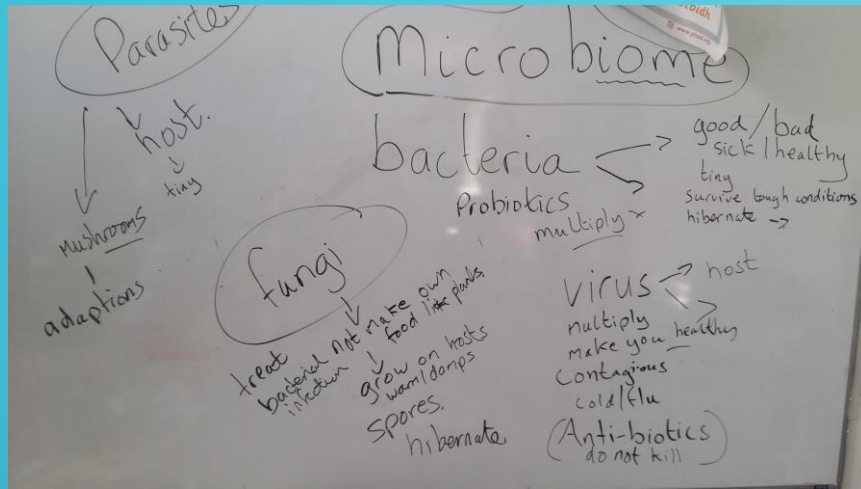 Parasites
host.
tiny
Mushrooms
adaptions
Microbiome
bacteria
Probiotics
multiply
good/bad
sick/healthy
tiny
survive tough conditions
hibernate
fungi
treat
bacterial
infection
not make own
food like
grow on hosts
warm/damps
spores.
hibernate
virus
host
multiply
make you healthy
contagious
cold/flu
(Anti-biotics
do not kill)